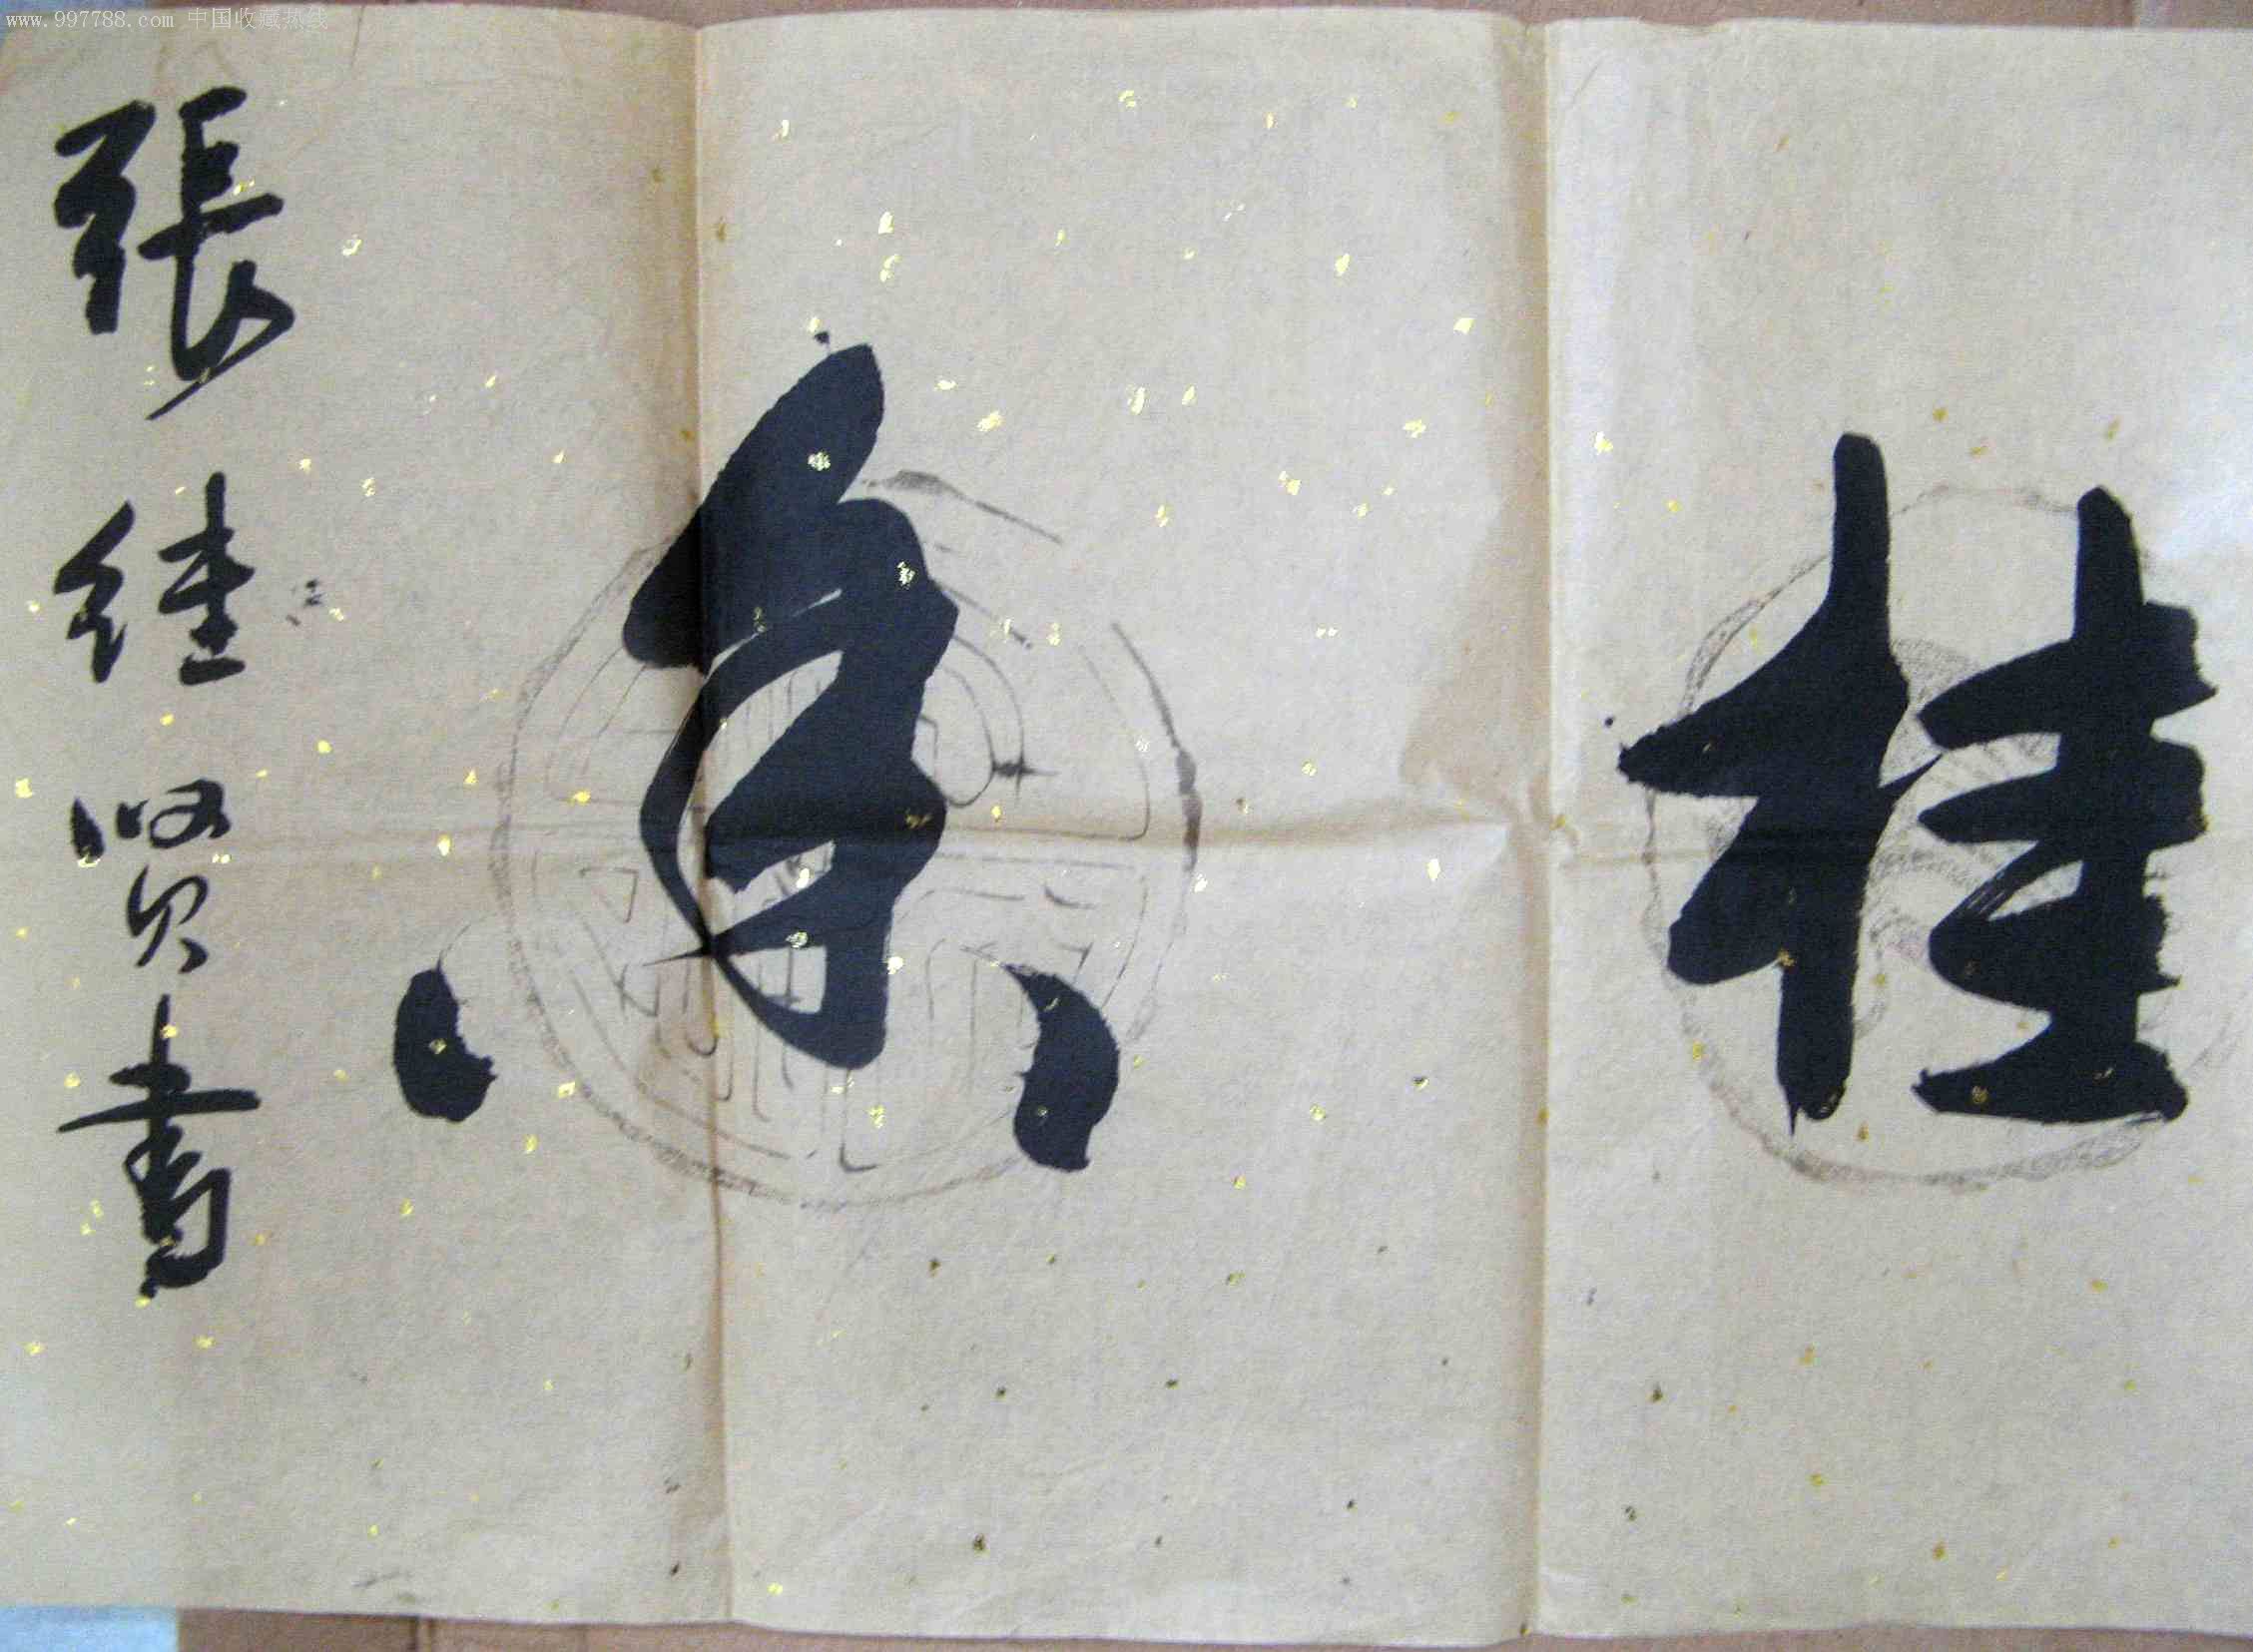 www.997788.com 中国收藏热线
桂系
張維賢書